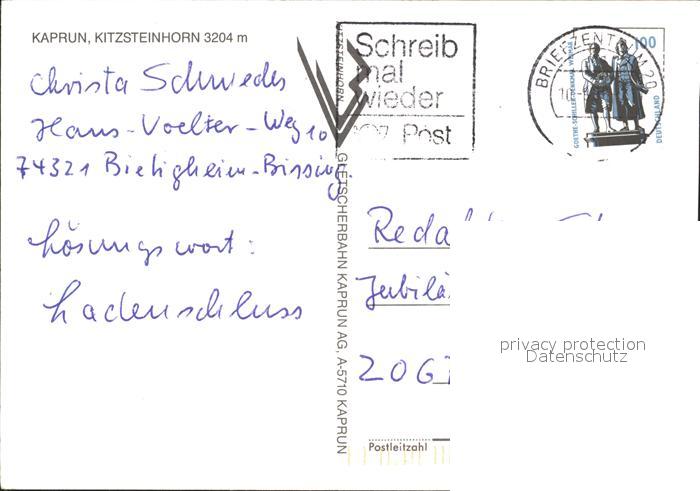 KAPRUN, KITZSTEINHORN 3204 m
Christa Schwedes
Hans-Voelter-Weg 10
74321 Bietigheim-Bissing.
Lösungswort:
Ladenschluss
KITZSTEINHORN
GLETSCHERBAHN KAPRUN AG, A-5710 KAPRUN
Schreib
mal
wieder
Post
BRIEFZENTRUM 20
100
GOETHE-SCHILLER-DENKMAL WEIMAR
DEUTSCHLAND
Reda
Jubilä
2067
Postleitzahl
privacy protection
Datenschutz